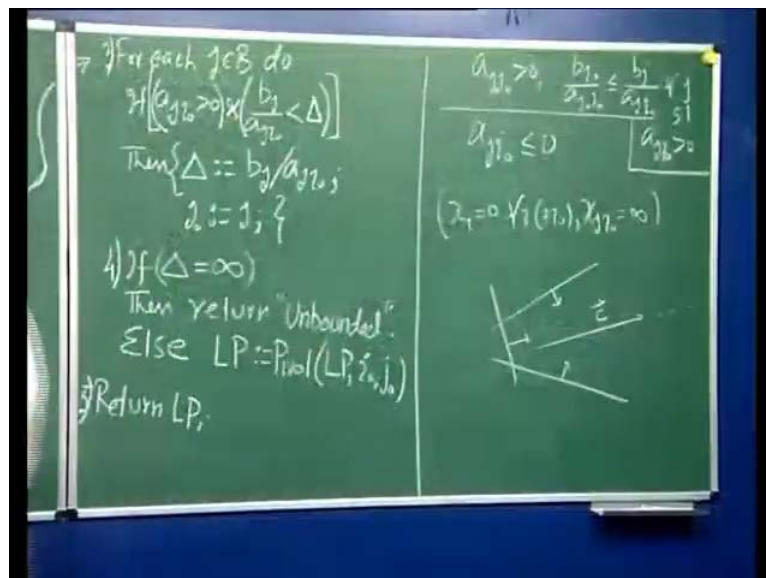 3) For each j∈B do
If[(a_{ji₀}>0)&(b_j/a_{ji₀}<Δ)]
Then{Δ:=b_j/a_{ji₀};
j₀:=j;}
4) If(Δ=∞)
Then return "Unbounded".
Else LP:=Pivot(LP, i₀, j₀)
5) Return LP;
a_{j₀i₀}>0, b_{j₀}/a_{j₀i₀} ≤ b_j/a_{ji₀} ∀ j
st
a_{ji₀}>0
a_{ji₀} ≤ 0
(x_i=0 ∀i(≠i₀), x_{i₀}=∞)
c⃗